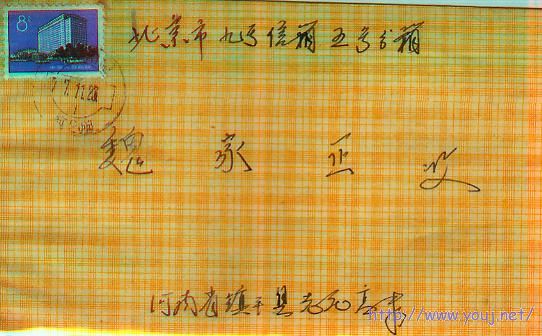 8分
北京市九号信箱五号分箱
魏家正收
河南省镇平县
http://www.youj.net/